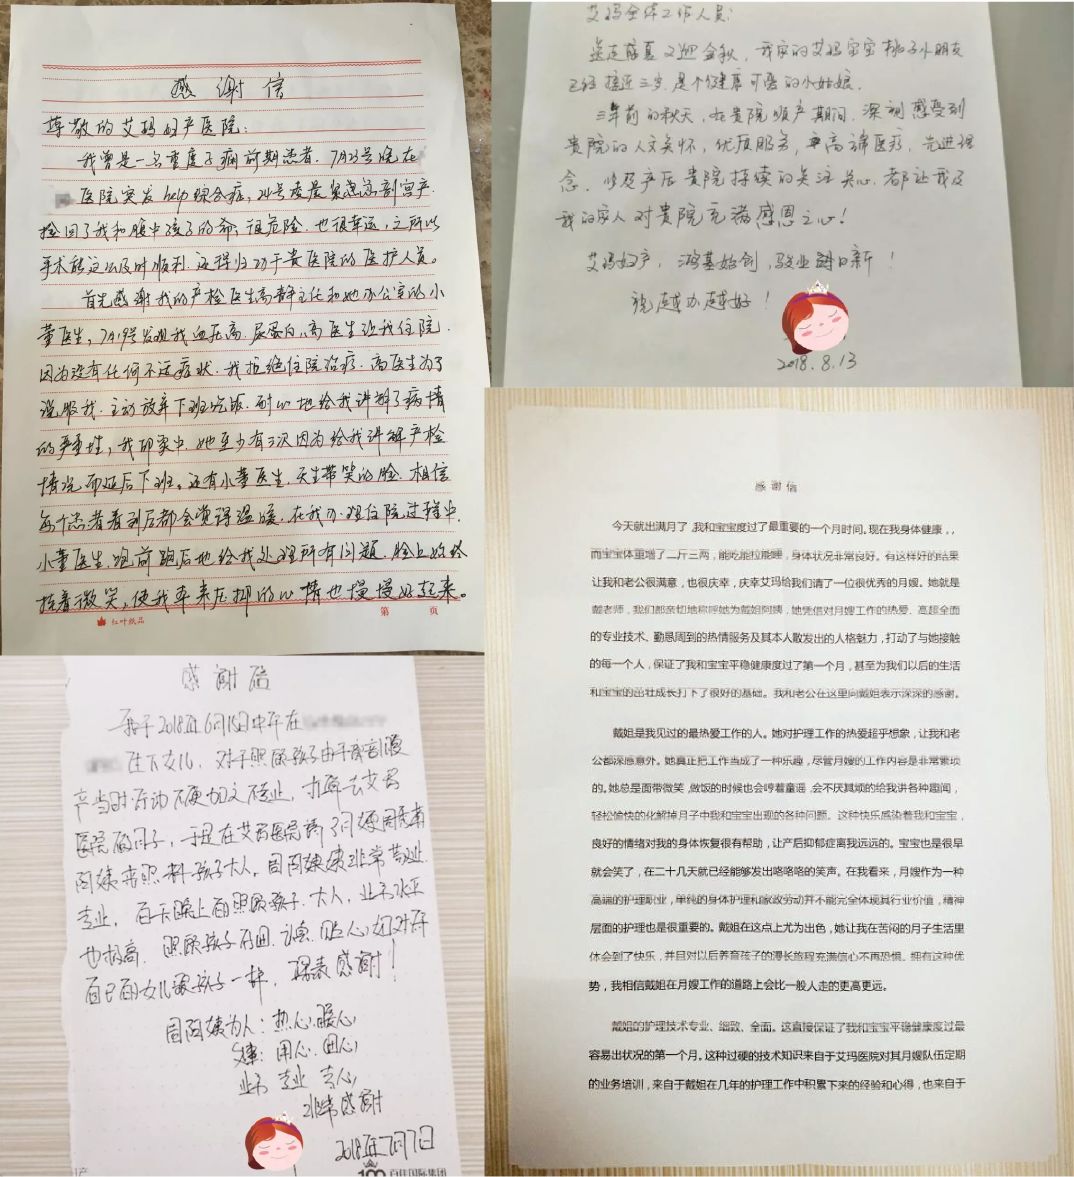 感谢信
尊敬的艾玛妇产医院：
我曾是一名重度子痫前期患者，7月23号晚在
医院突发hellp综合症，24号凌晨紧急剖宫产
捡回了我和腹中孩子的命，很危险，也很幸运，之所以
手术能这么及时顺利，还得归功于贵医院的医护人员。
首先感谢我的产检医生高静主任和她办公室的小
董医生，7月19号发现我血压高，尿蛋白，高医生让我住院，
因为没有任何不适症状，我拒绝住院治疗，高医生为了
说服我，主动放弃下班吃饭，耐心地给我讲解了病情
的严重性，我印象中，她至少有三次因为给我讲解产检
情况而延后下班。还有小董医生，天生带笑的脸，相信
每个患者看到后都会觉得温暖，在我办理住院过程中，
小董医生，跑前跑后地给我处理所有问题，脸上始终
挂着微笑，使我本来压抑的心情也慢慢好起来。
第 页
红叶纸品
艾玛全体工作人员：
送走盛夏又迎金秋，我家的艾玛宝宝桃子小朋友
已经接近三岁，是个健康可爱的小姑娘。
三年前的秋天，在贵院顺产期间，深刻感受到
贵院的人文关怀，优质服务，高端医疗，先进理
念，以及产后贵院持续的关注关心，都让我及
我的家人对贵院充满感恩之心！
艾玛妇产，鸿基始创，骏业日新！
祝越办越好！
2018.8.13
感谢信
我于2018年6月15日中午在
生下女儿，对于照顾孩子由于剖腹
产当时行动不便
医院
阿姨来照料孩子大人。周阿姨非常敬业
专业，白天晚上的照顾孩子、大人，业务水平
也极高，照顾孩子用心、贴心，如对待
自己的女儿跟孩子一样，深表感谢！
周阿姨为人：热心、暖心
做事：用心、细心
业务 专业 专心
非常感谢
2018年7月7日
百佳国际集团
感谢信
今天就出满月了，我和宝宝度过了最重要的一个月时间。现在我身体健康，，
而宝宝体重增了二斤三两，能吃能拉能睡，身体状况非常良好。有这样好的结果
让我和老公很满意，也很庆幸，庆幸艾玛给我们请了一位很优秀的月嫂。她就是
戴老师，我们都亲切地称呼她为戴姐阿姨，她凭借对月嫂工作的热爱、高超全面
的专业技术、勤恳周到的热情服务及其本人散发出的人格魅力，打动了与她接触
的每一个人，保证了我和宝宝平稳健康度过了第一个月，甚至为我们以后的生活
和宝宝的茁壮成长打下了很好的基础。我和老公在这里向戴姐表示深深的感谢。
戴姐是我见过的最热爱工作的人。她对护理工作的热爱超乎想象，让我和老
公都深感意外。她真正把工作当成了一种乐趣，尽管月嫂的工作内容是非常繁琐
的。她总是面带微笑，做饭的时候也会哼着童谣，会不厌其烦的给我讲各种趣闻，
轻松愉快的化解掉月子中我和宝宝出现的各种问题。这种快乐感染着我和宝宝，
良好的情绪对我的身体恢复很有帮助，让产后抑郁症离我远远的。宝宝也是很早
就会笑了，在二十几天就已经能够发出咯咯咯的笑声。在我看来，月嫂作为一种
高端的护理职业，单纯的身体护理和家政劳动并不能完全体现其行业价值，精神
层面的护理也是很重要的。戴姐在这点上尤为出色，她让我在苦闷的月子生活里
体会到了快乐，并且对以后养育孩子的漫长旅程充满信心不再恐惧。拥有这种优
势，我相信戴姐在月嫂工作的道路上会比一般人走的更高更远。
戴姐的护理技术专业、细致、全面。这直接保证了我和宝宝平稳健康度过最
容易出状况的第一个月。这种过硬的技术知识来自于艾玛医院对其月嫂队伍定期
的业务培训，来自于戴姐在几年的护理工作中积累下来的经验和心得，也来自于